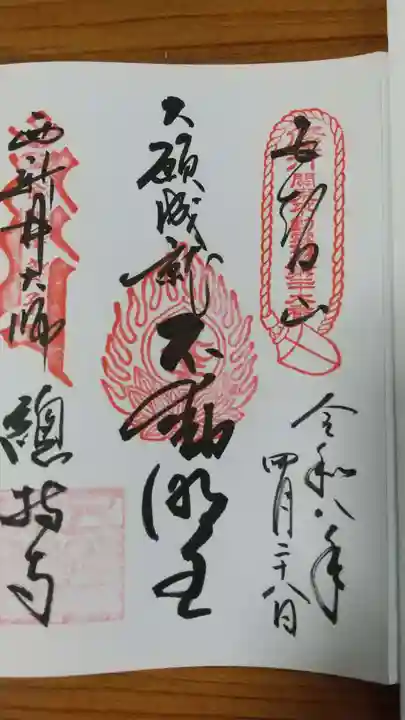 五智山
令和八年
四月二十八日
大願成就
不動明王
西新井大師
總持寺